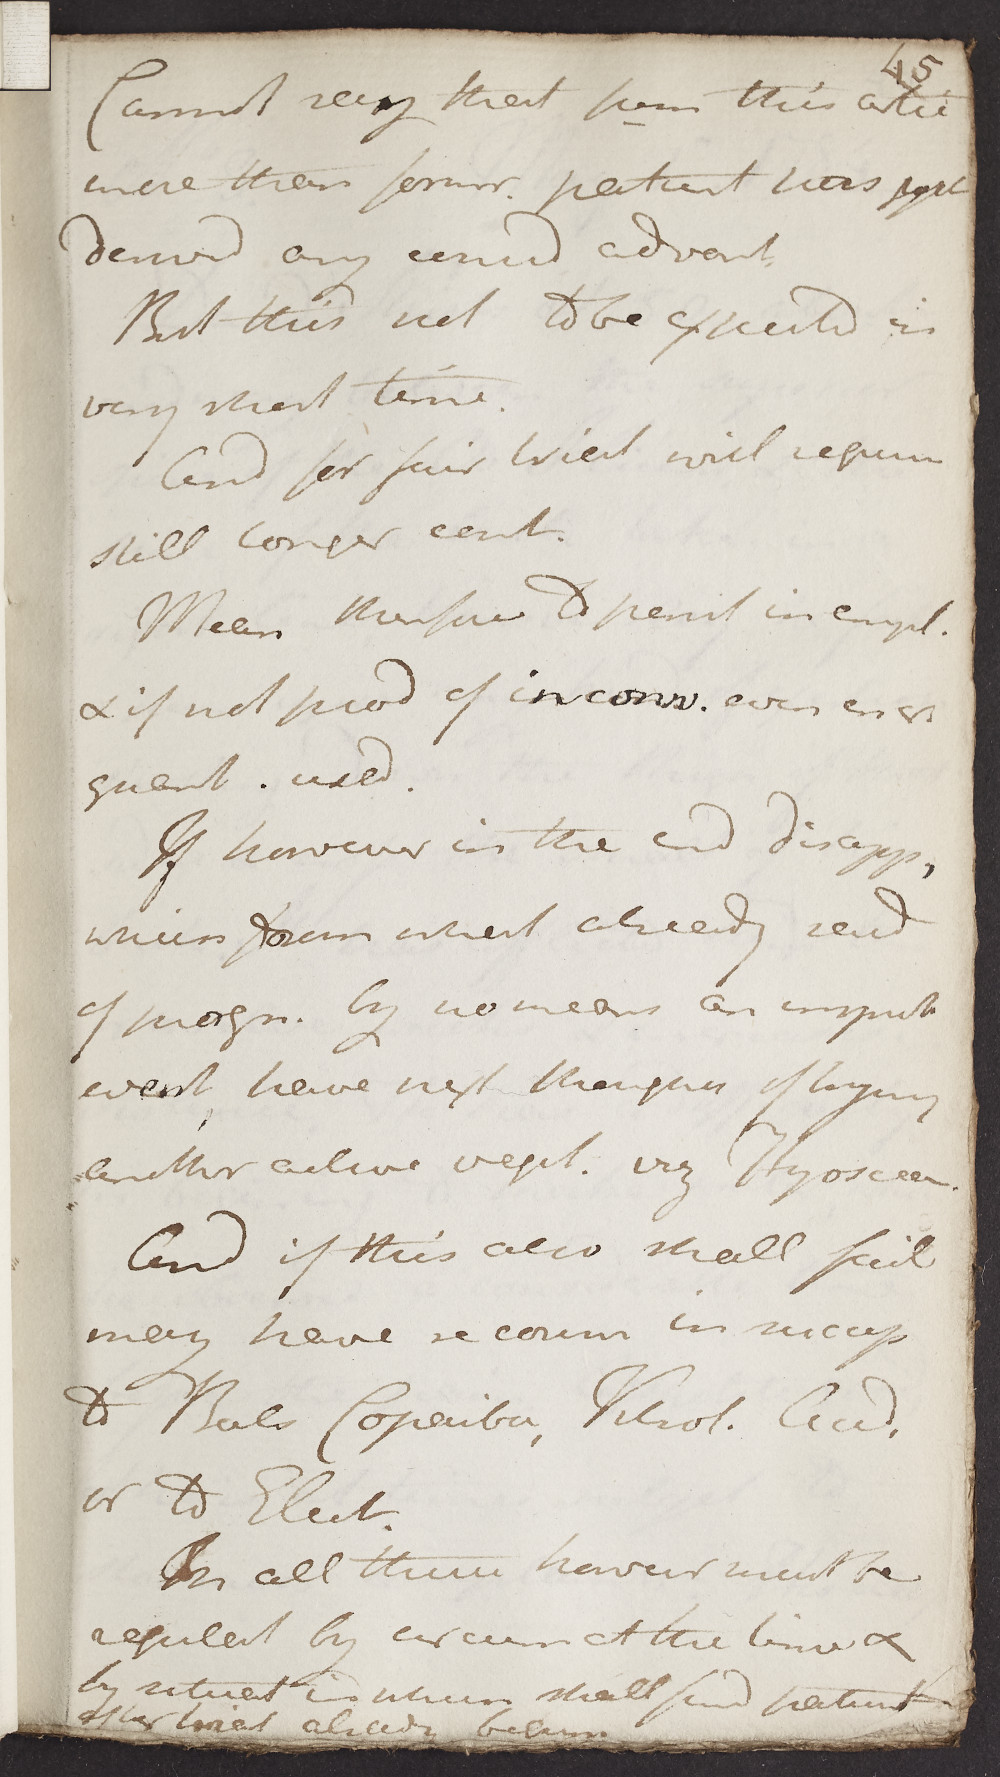 45
Cannot say that from this artic
more than former. patient has yet
derived any consid advant.
But this not to be expected in
very short time.
And for fair trial will requir
still longer cont.
Mean therefore to persist in empl.
& if not prod of inconv. even in gr.
quant. used.
If however in the end disapp,
which from what already said
of progn. by no means an improb
event, have next thoughts of trying
another active veget. viz Hyosciam.
And if this also shall fail
may have recours in success
to Bals Copaiba, Vitriol. Acid,
or to Elect.
In all these however must be
regulat by circum at the time &
by situat in which shall find patient
after trial already begun